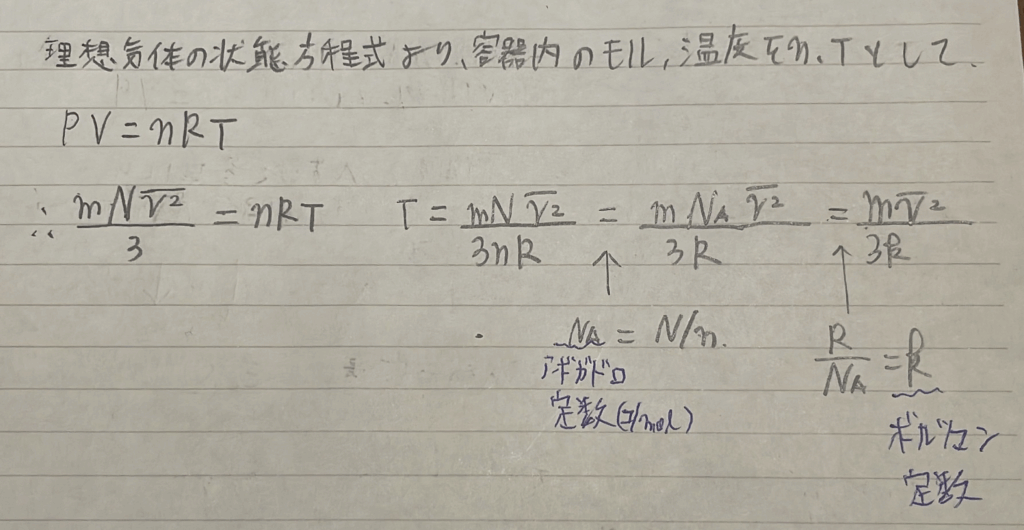 理想気体の状態方程式より、容器内のモル,温度をn、Tとして、
PV = nRT
∴ mN\overline{v^2}/3 = nRT　T = mN\overline{v^2}/3nR = mN_A\overline{v^2}/3R = m\overline{v^2}/3k
↑　↑
N_A = N/n.　R/N_A = k
アボガドロ
定数(コ/mol)
ボルツマン
定数